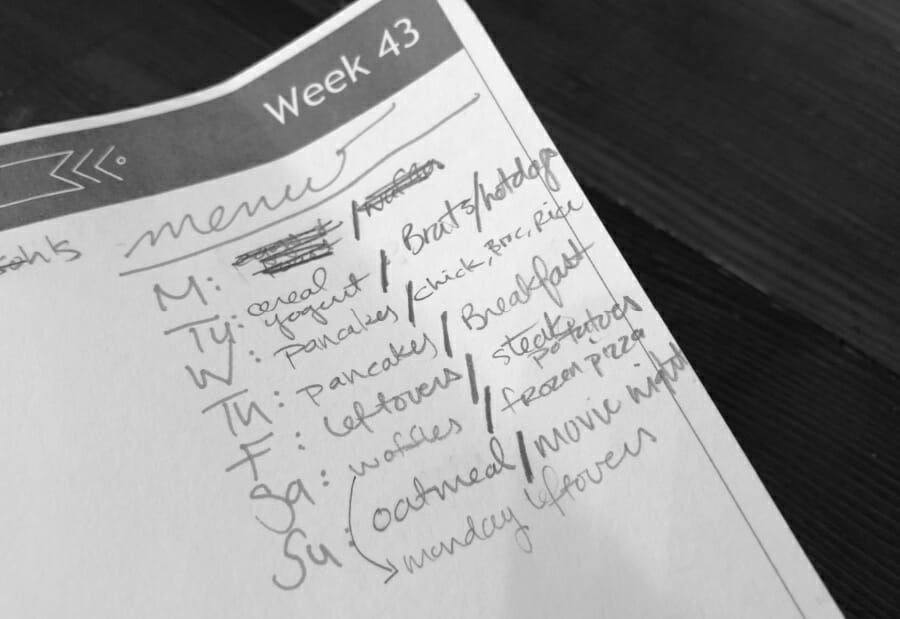 Week 43
menu
M: /
Tu: cereal yogurt / Brats/hotdogs
W: pancakes / chick, Broc, Rice
Th: pancakes / Breakfast
F: leftovers / steak potatoes
Sa: waffles / frozen pizza
Su: oatmeal / movie night
monday leftovers